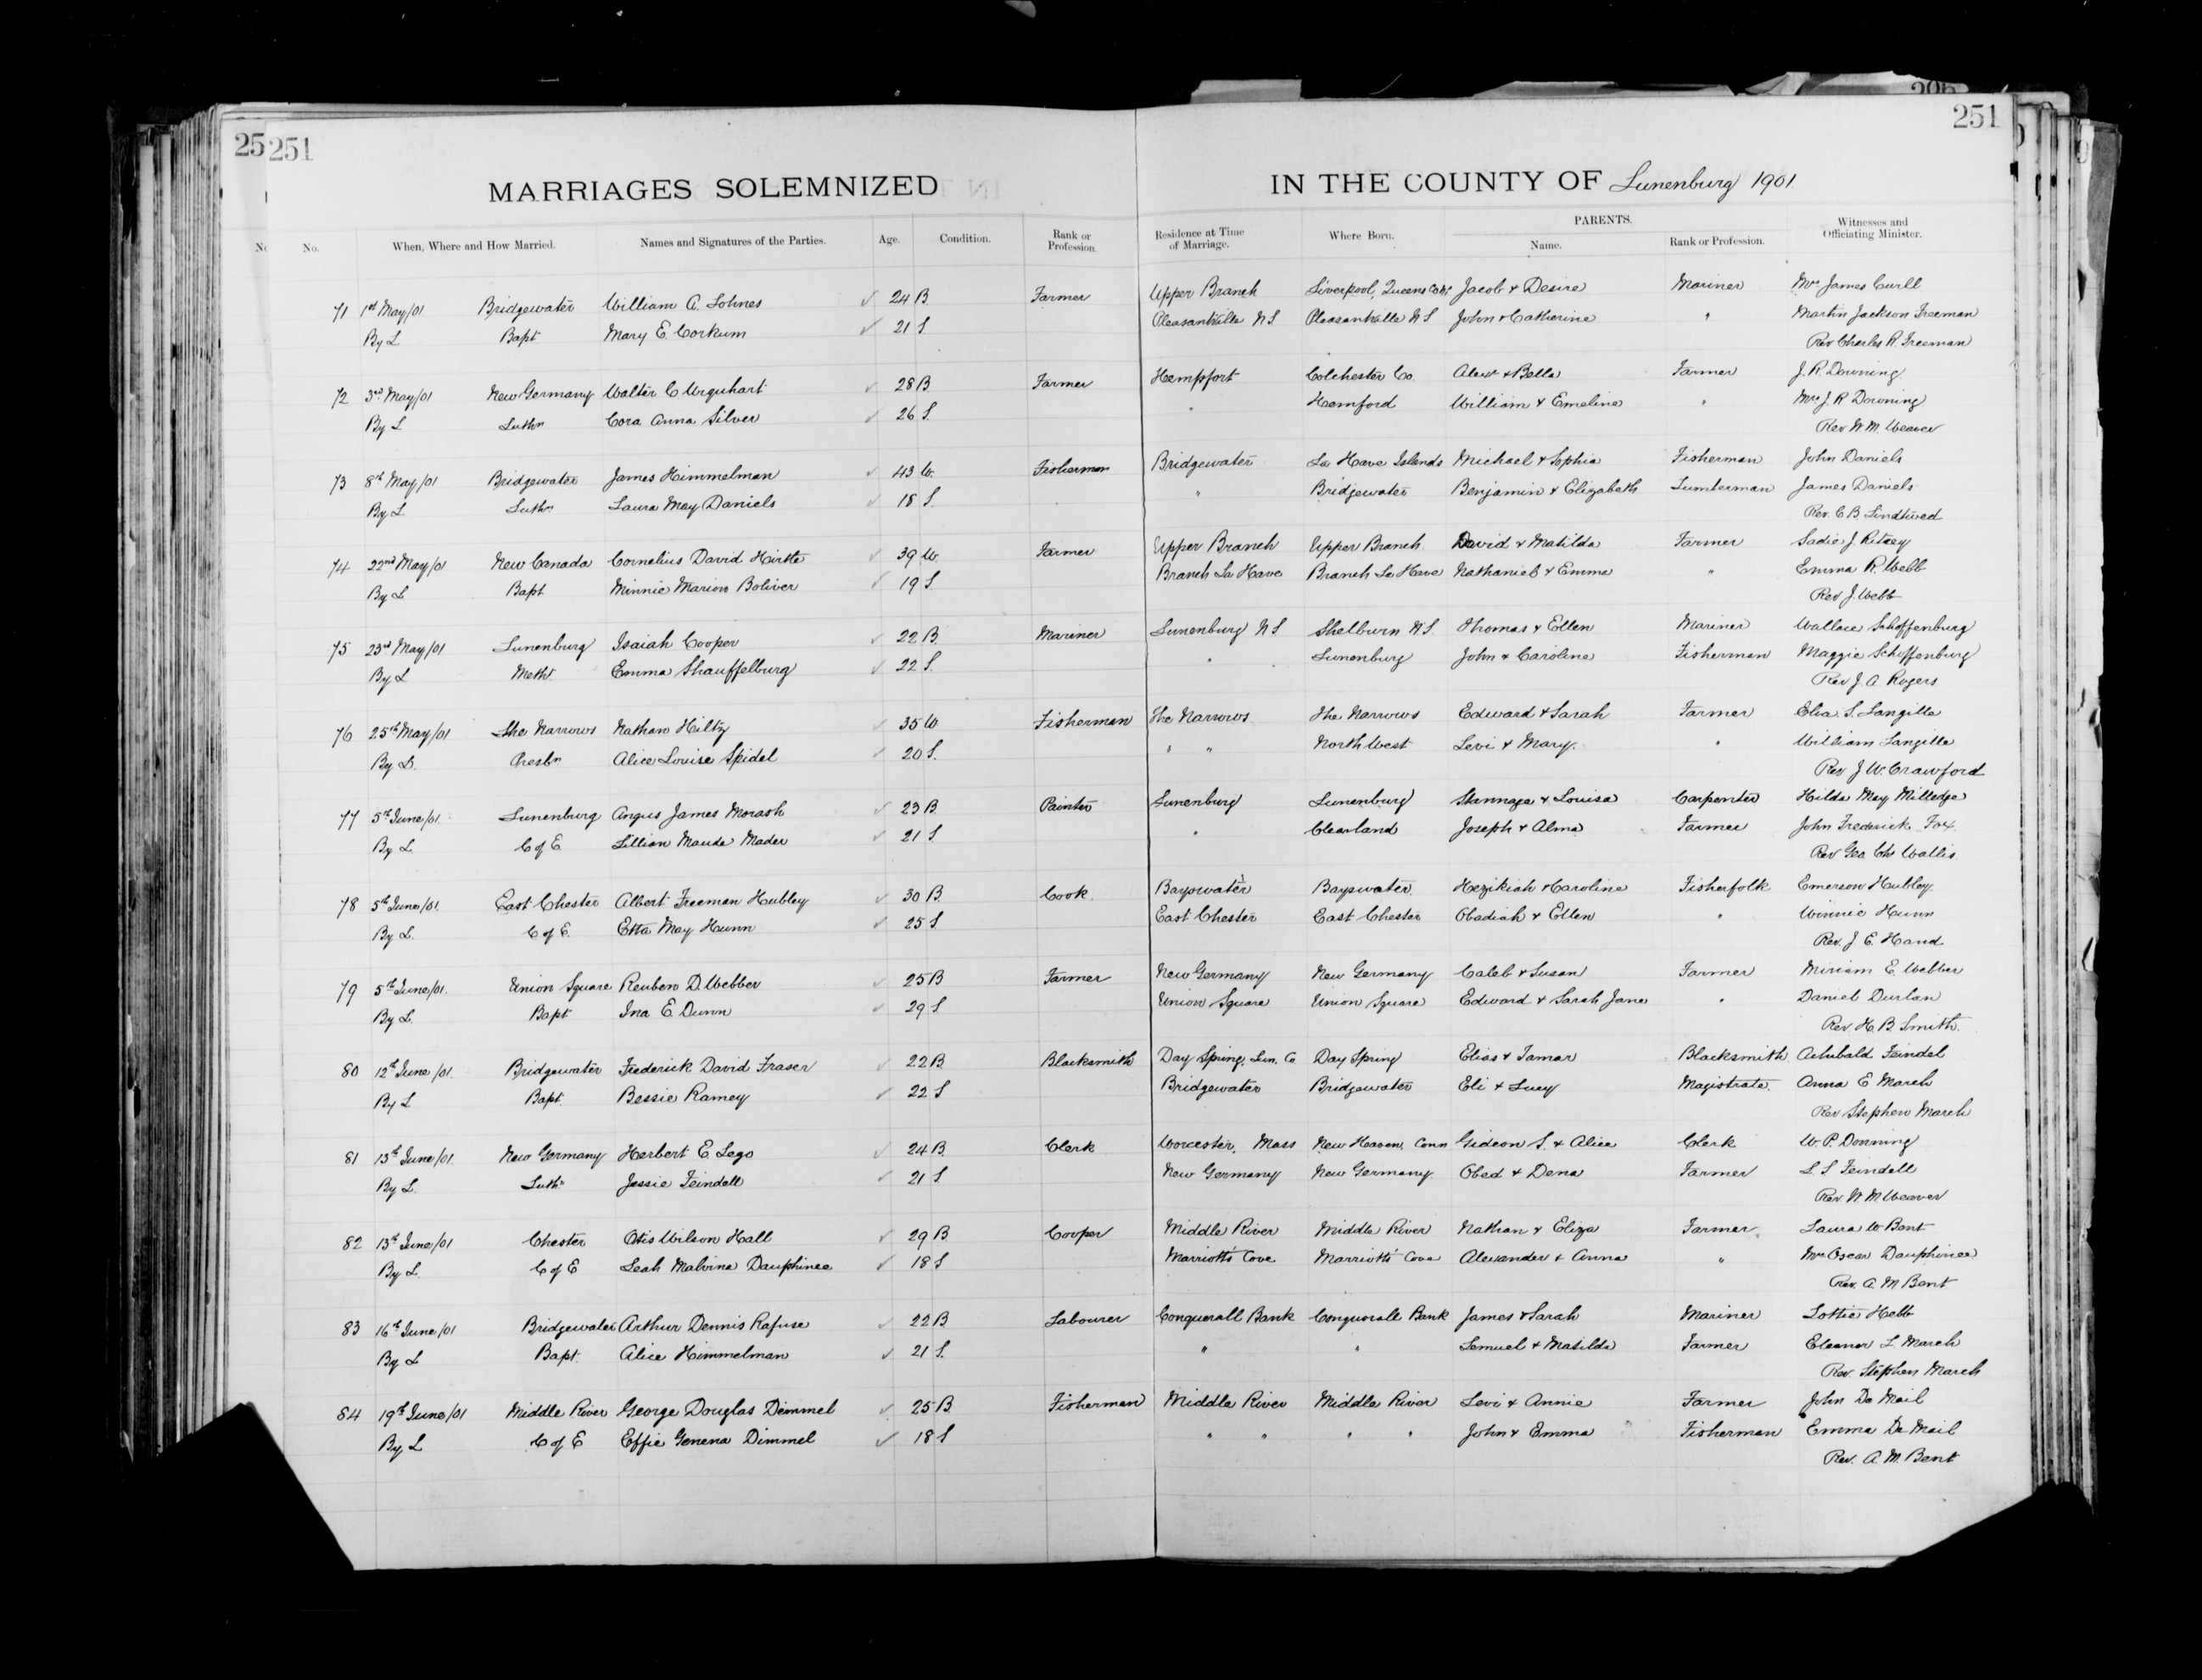 25 251
251
MARRIAGES SOLEMNIZED IN THE COUNTY OF Lunenburg 1901.
No. When, Where and How Married. Names and Signatures of the Parties. Age. Condition. Rank or Profession. Residence at Time of Marriage. Where Born. PARENTS. Name. Rank or Profession. Witnesses and Officiating Minister.
71 1st May/01 Bridgewater William A. Lohnes 24 B Farmer Upper Branch Liverpool, Queens Jacob & Desire Mariner Mrs James Curll
By L Bapt Mary E. Corkum 21 S. Pleasantville N S Pleasantville N S John & Catherine " Martin Jackson Freeman
Rev Charles R. Freeman
72 3rd May/01 New Germany Walter C Urquhart 28 B Farmer Hempfort Colchester Co. Alexr & Bella Farmer J. R. Downing
By L Luthn Cora Anna Silver 26 S. " Hemford William & Emeline " Mrs J. R Downing
Rev W. M. Weaver
73 8th May/01 Bridgewater James Himmelman 43 W. Fisherman Bridgewater La Have Islands Michael & Sophia Fisherman John Daniels
By L Luthn Laura May Daniels 18 S. " Bridgewater Benjamin & Elizabeth Lumberman James Daniels
Rev. C. B. Lindtwed
74 22nd May/01 New Canada Cornelius David Hirtle 39 W. Farmer Upper Branch Upper Branch David & Matilda Farmer Sadie J. Ritcey
By L Bapt Minnie Marion Boliver 19 S. Branch La Have Branch La Have Nathaniel & Emma " Emma R. Webb
Rev J. Webb
75 23rd May/01 Lunenburg Isaiah Cooper 22 B. Mariner Lunenburg N S Shelburn N S. Thomas & Ellen Mariner Wallace Schoffenburg
By L Meth. Emma Shauffelburg 22 S. " Lunenburg John & Caroline Fisherman Maggie Schoffenburg
Rev J. A. Rogers
76 25th May/01 The Narrows Nathan Hiltz 35 W Fisherman The Narrows The Narrows Edward & Sarah Farmer Elia S. Langille
By L. Presbn Alice Louise Spidel 20 S. " " North West Levi & Mary. " William Langille
Rev J. W. Crawford
77 5th June/01. Lunenburg Angus James Morash 23 B. Painter Lunenburg Lunenburg Stannage & Louisa Carpenter Hilda May Milledge
By L C of E Lillian Maude Mader 21 S " Clearland Joseph & Alma Farmer John Frederick Fox.
Rev Geo. Chs Wallis
78 5th June/01. East Chester Albert Freeman Hubley 30 B. Cook. Bayswater Bayswater. Hezikiah & Caroline Fisherfolk Emerson Hubley.
By L. C of E. Etta May Hunn 25 S East Chester East Chester Obadiah & Ellen " Winnie Hunn
Rev. J. E. Hand
79 5th June/01. Union Square Reuben D. Webber 25 B Farmer New Germany New Germany Caleb & Susan Farmer Miriam E. Webber
By L. Bapt. Ina E. Dunn 29 S Union Square Union Square Edward & Sarah Jane " Daniel Durlan
Rev. H. B. Smith.
80 12th June/01. Bridgewater Frederick David Fraser 22 B Blacksmith Day Spring, Lun. Co Day Spring Elias & Tamar Blacksmith Achibald Feindel
By L Bapt. Bessie Ramey 22 S Bridgewater Bridgewater Eli & Lucy Magistrate. Anna E March
Rev Stephen March
81 13th June/01. New Germany Herbert E Lego 24 B. Clerk Worcester, Mass New Heaven, Conn Gideon S. & Alice Clerk W. P. Downing
By L. Luthn Jessie Feindell 21 S. New Germany New Germany. Obed & Dena Farmer L. S Feindell
Rev. W. M. Weaver
82 13th June/01 Chester Otis Wilson Hall 29 B Cooper Middle River Middle River Nathan & Eliza Farmer. Laura W. Bent
By L. C of E Leah Malvina Dauphinee 18 S Marriotts' Cove Marriotts' Cove Alexander & Anna " Mrs Oscar Dauphinee
Rev. A. M. Bent.
83 16th June/01 Bridgewater Arthur Dennis Rafuse 22 B. Labourer Conquerall Bank Conquerall Bank James & Sarah Mariner Lottie Hebb
By L Bapt. Alice Himmelman 21 S. " " Lemuel & Matilda Farmer Eleanor L. March
Rev. Stephen March
84 19th June/01 Middle River George Douglas Dimmel 25 B. Fisherman Middle River Middle River Levi & Annie Farmer John De Mail
By L C of E Effie Genena Dimmel 18 S " " " " John & Emma Fisherman Emma De Mail
Rev. A. M. Bent